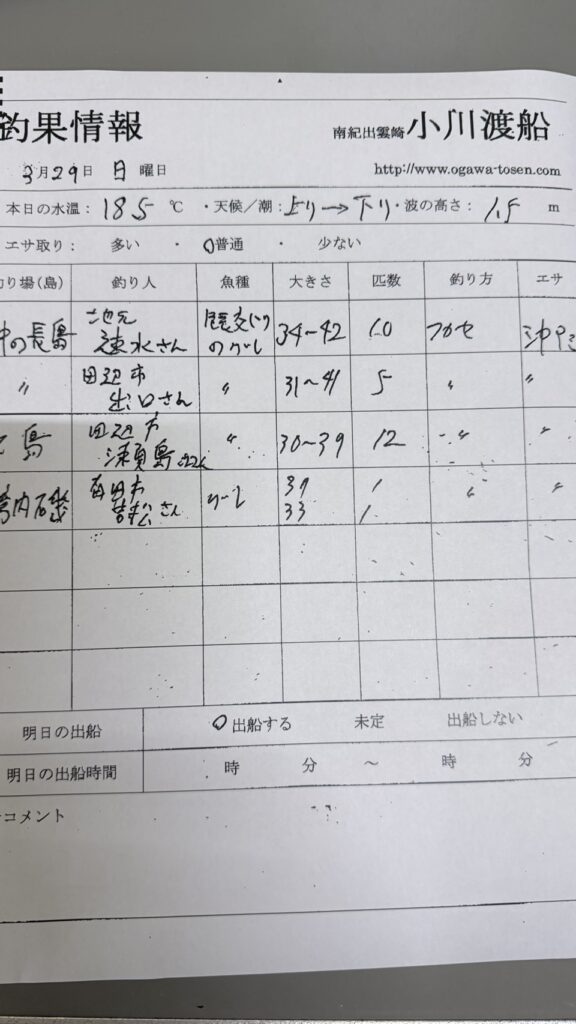 釣果情報
南紀出雲崎 小川渡船
3月29日 日 曜日
http://www.ogawa-tosen.com
本日の水温: 18.5 ℃ ・天候/潮: 上り→下り ・波の高さ: 1.5 m
エサ取り: 多い ・ 普通 ・ 少ない
り場(島) 釣り人 魚種 大きさ 匹数 釣り方 エサ
の長島 地元 速水さん 尾長交じりのグレ 34~42 10 フカセ
〃 田辺市 出口さん 〃 31~41 5 〃 〃
島 田辺市 30~39 12 〃 〃
内磯 若松さん グレ 〃 〃
33 1
明日の出船 出船する 未定 出船しない
明日の出船時間 時 分 ~ 時 分
コメント